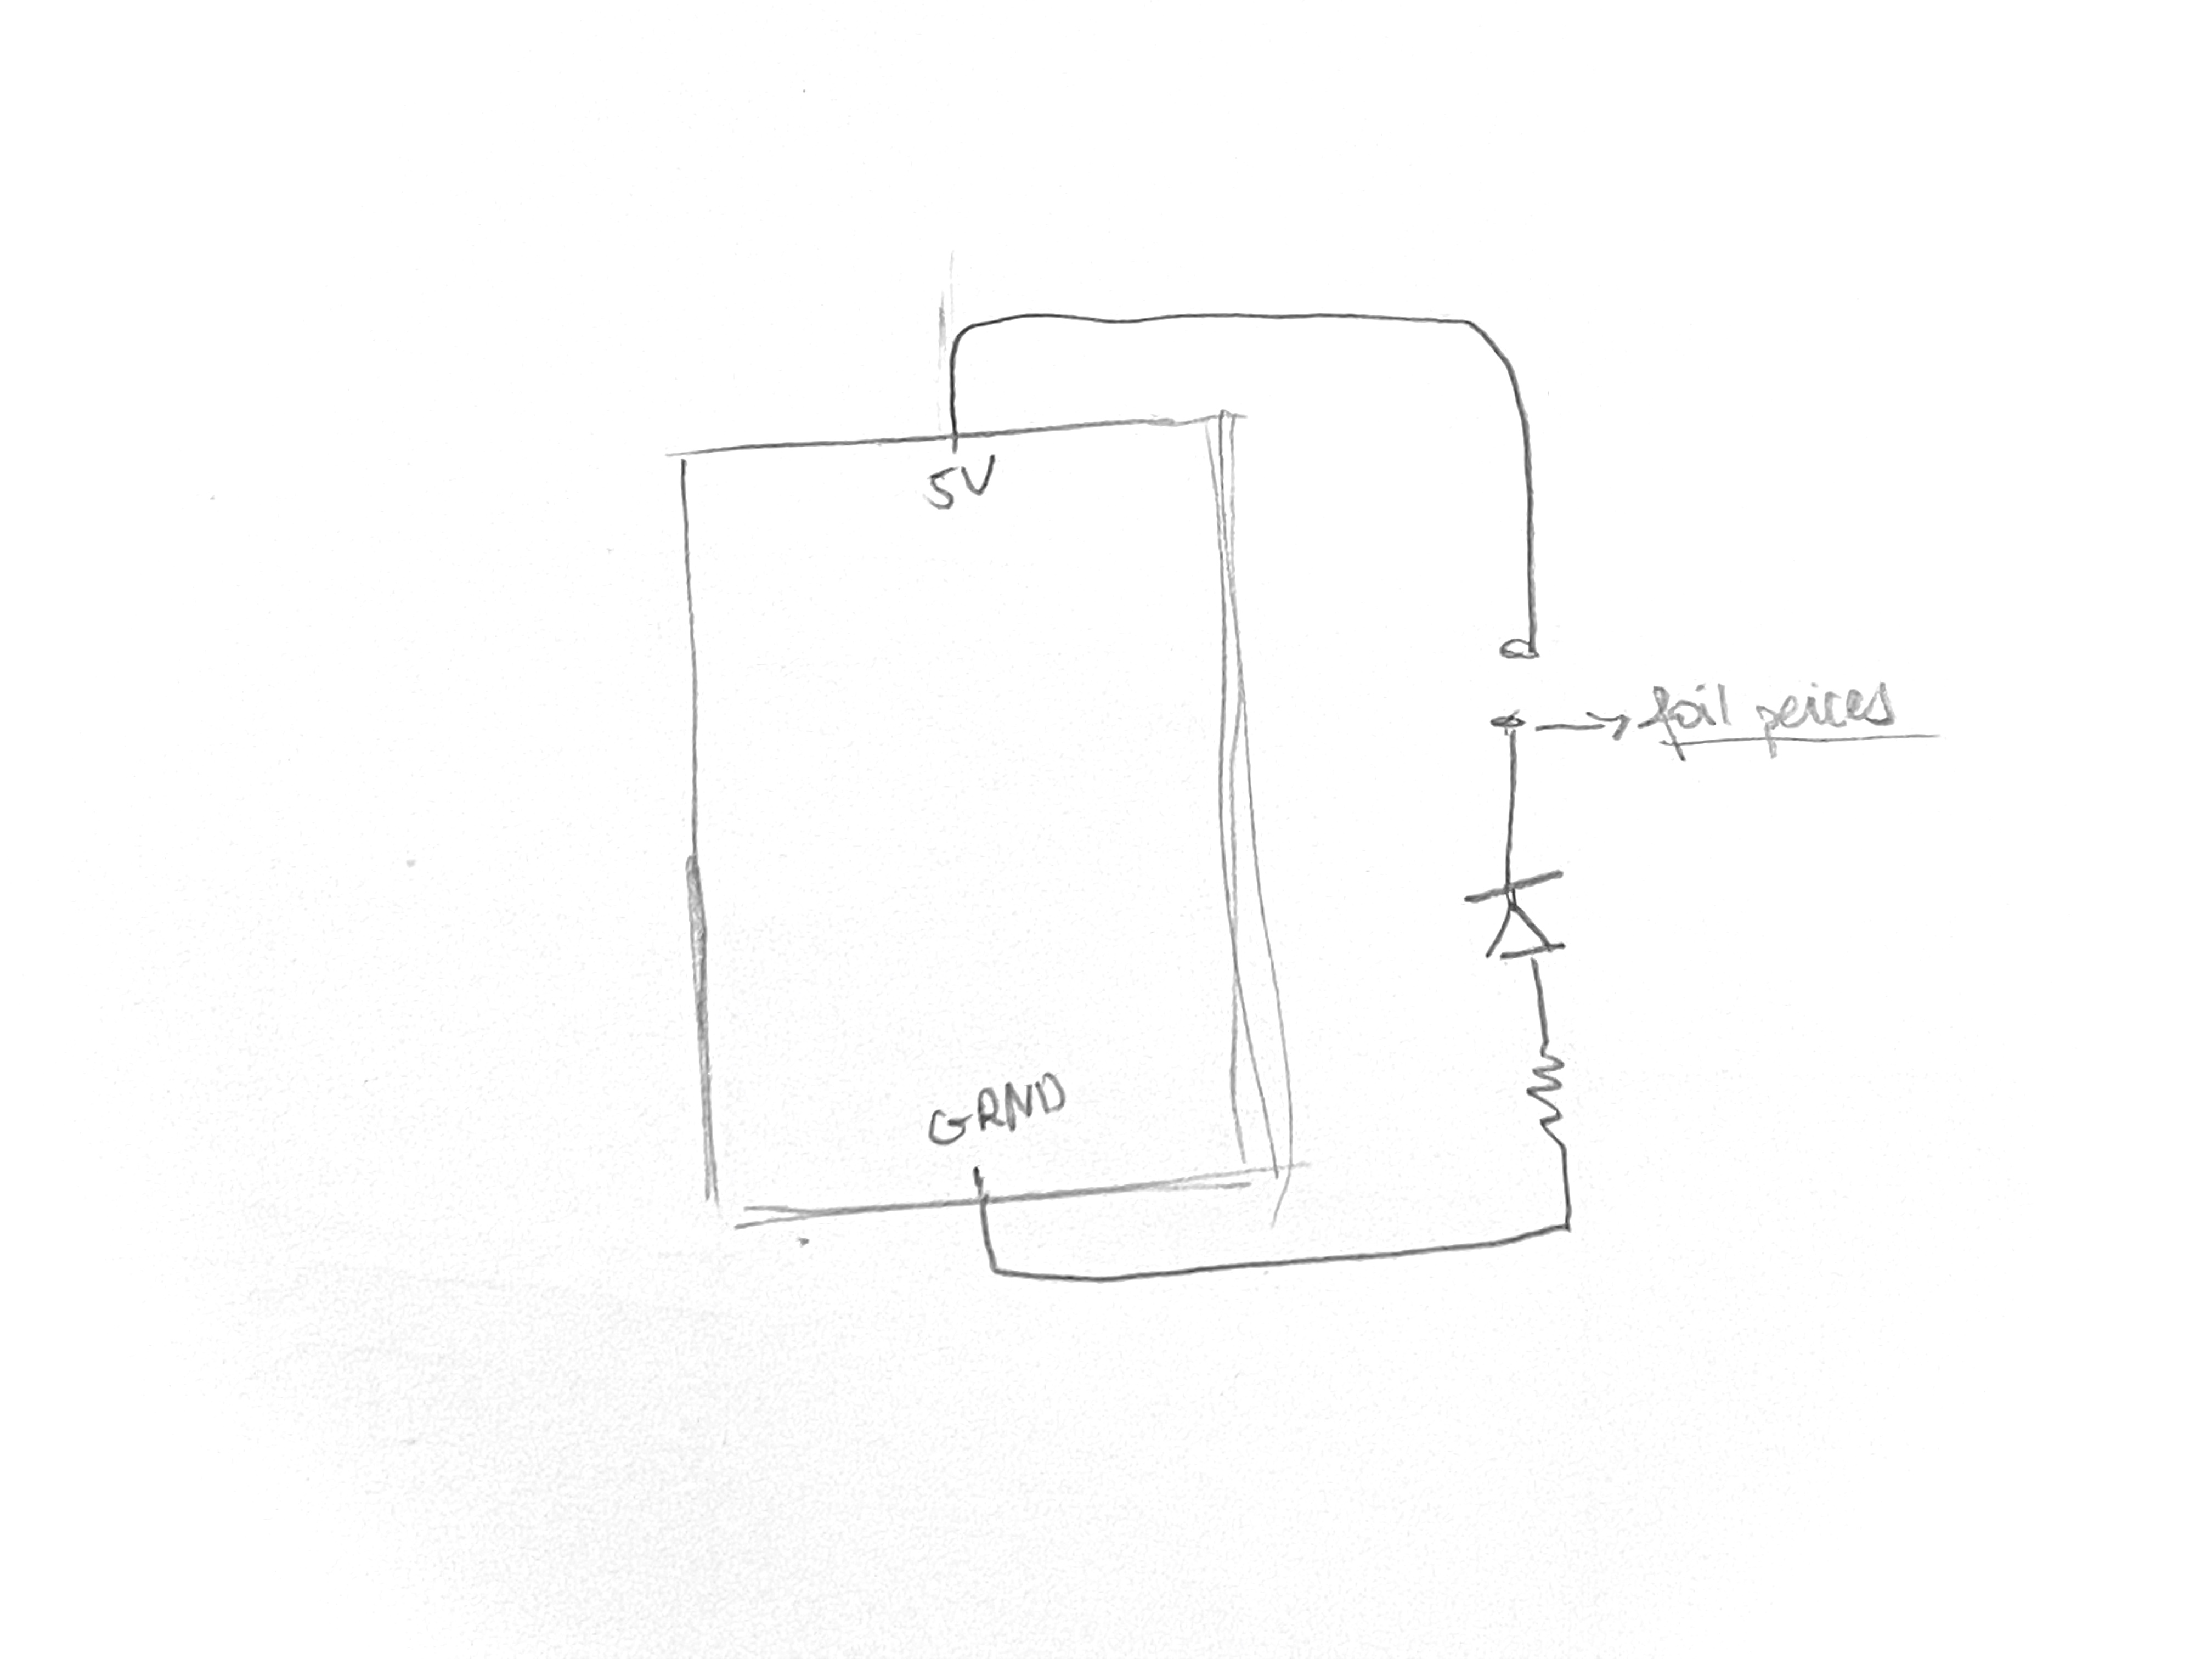 5V
foil peices
GRND